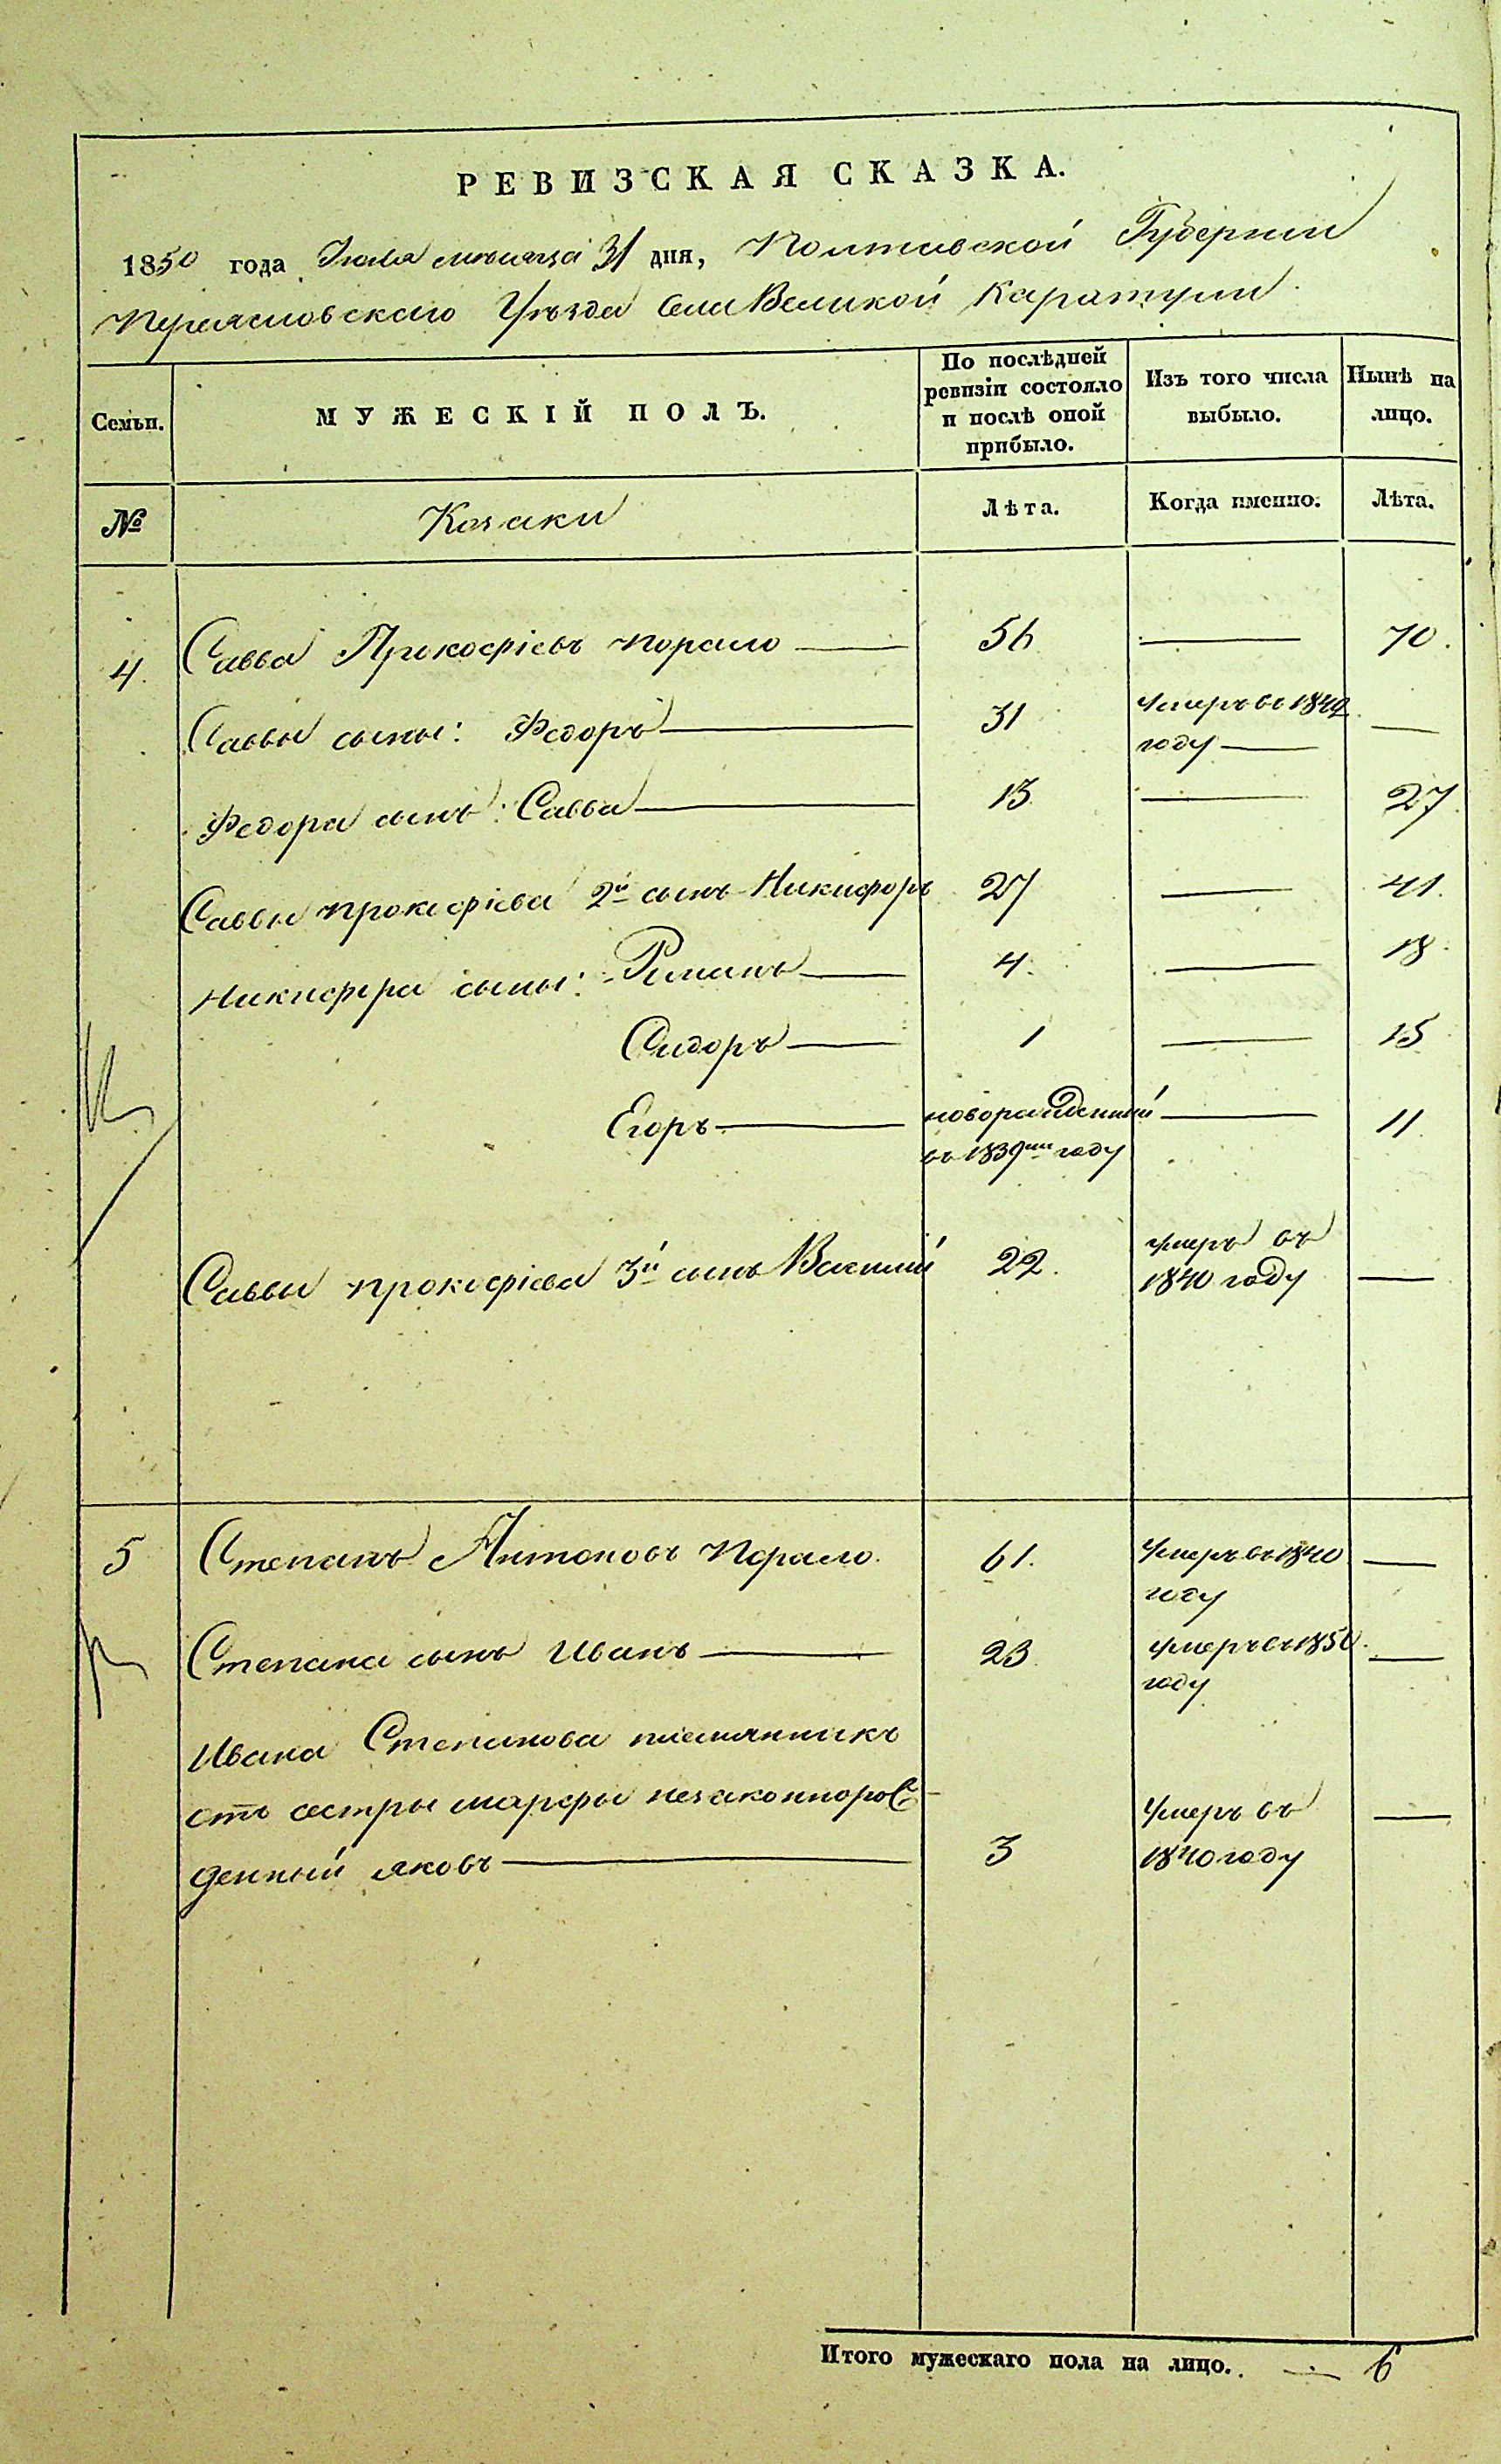 РЕВИЗСКАЯ СКАЗКА.
1850 года Июля месяца 31 дня, Полтавской Губернии
Переясловскаго Уѣзда Села Великой Каратули
Семьи.
МУЖЕСКІЙ ПОЛЪ.
По послѣдней ревизіи состояло и послѣ оной прибыло.
Изъ того числа выбыло.
Нынѣ на лицо.
№ Козаки Лѣта. Когда именно. Лѣта.
4. Савва Прокофіевъ Порало 56 70.
Саввы сыны: Федоръ 31 Умеръ въ 1849
году
Федора сынъ: Савва 13 27
Саввы Прокофіева 2й сынъ Никифоръ 27 41.
Никифора сыны: Романъ 4. 18
Сидоръ 1 15
Егоръ новорожденный 11
въ 1839м году
Саввы Прокофіева 3й сынъ Василий 22. умеръ въ
1840 году
5 Степанъ Антоновъ Порало. 61. Умеръ въ 1840
году
Степана сынъ Иванъ 23 умеръ въ 1850
году
Ивана Степанова племянникъ
отъ сестры Марфы незаконнорож-
денный Яковъ 3 Умеръ въ
1840 году
Итого мужескаго пола на лицо. 6